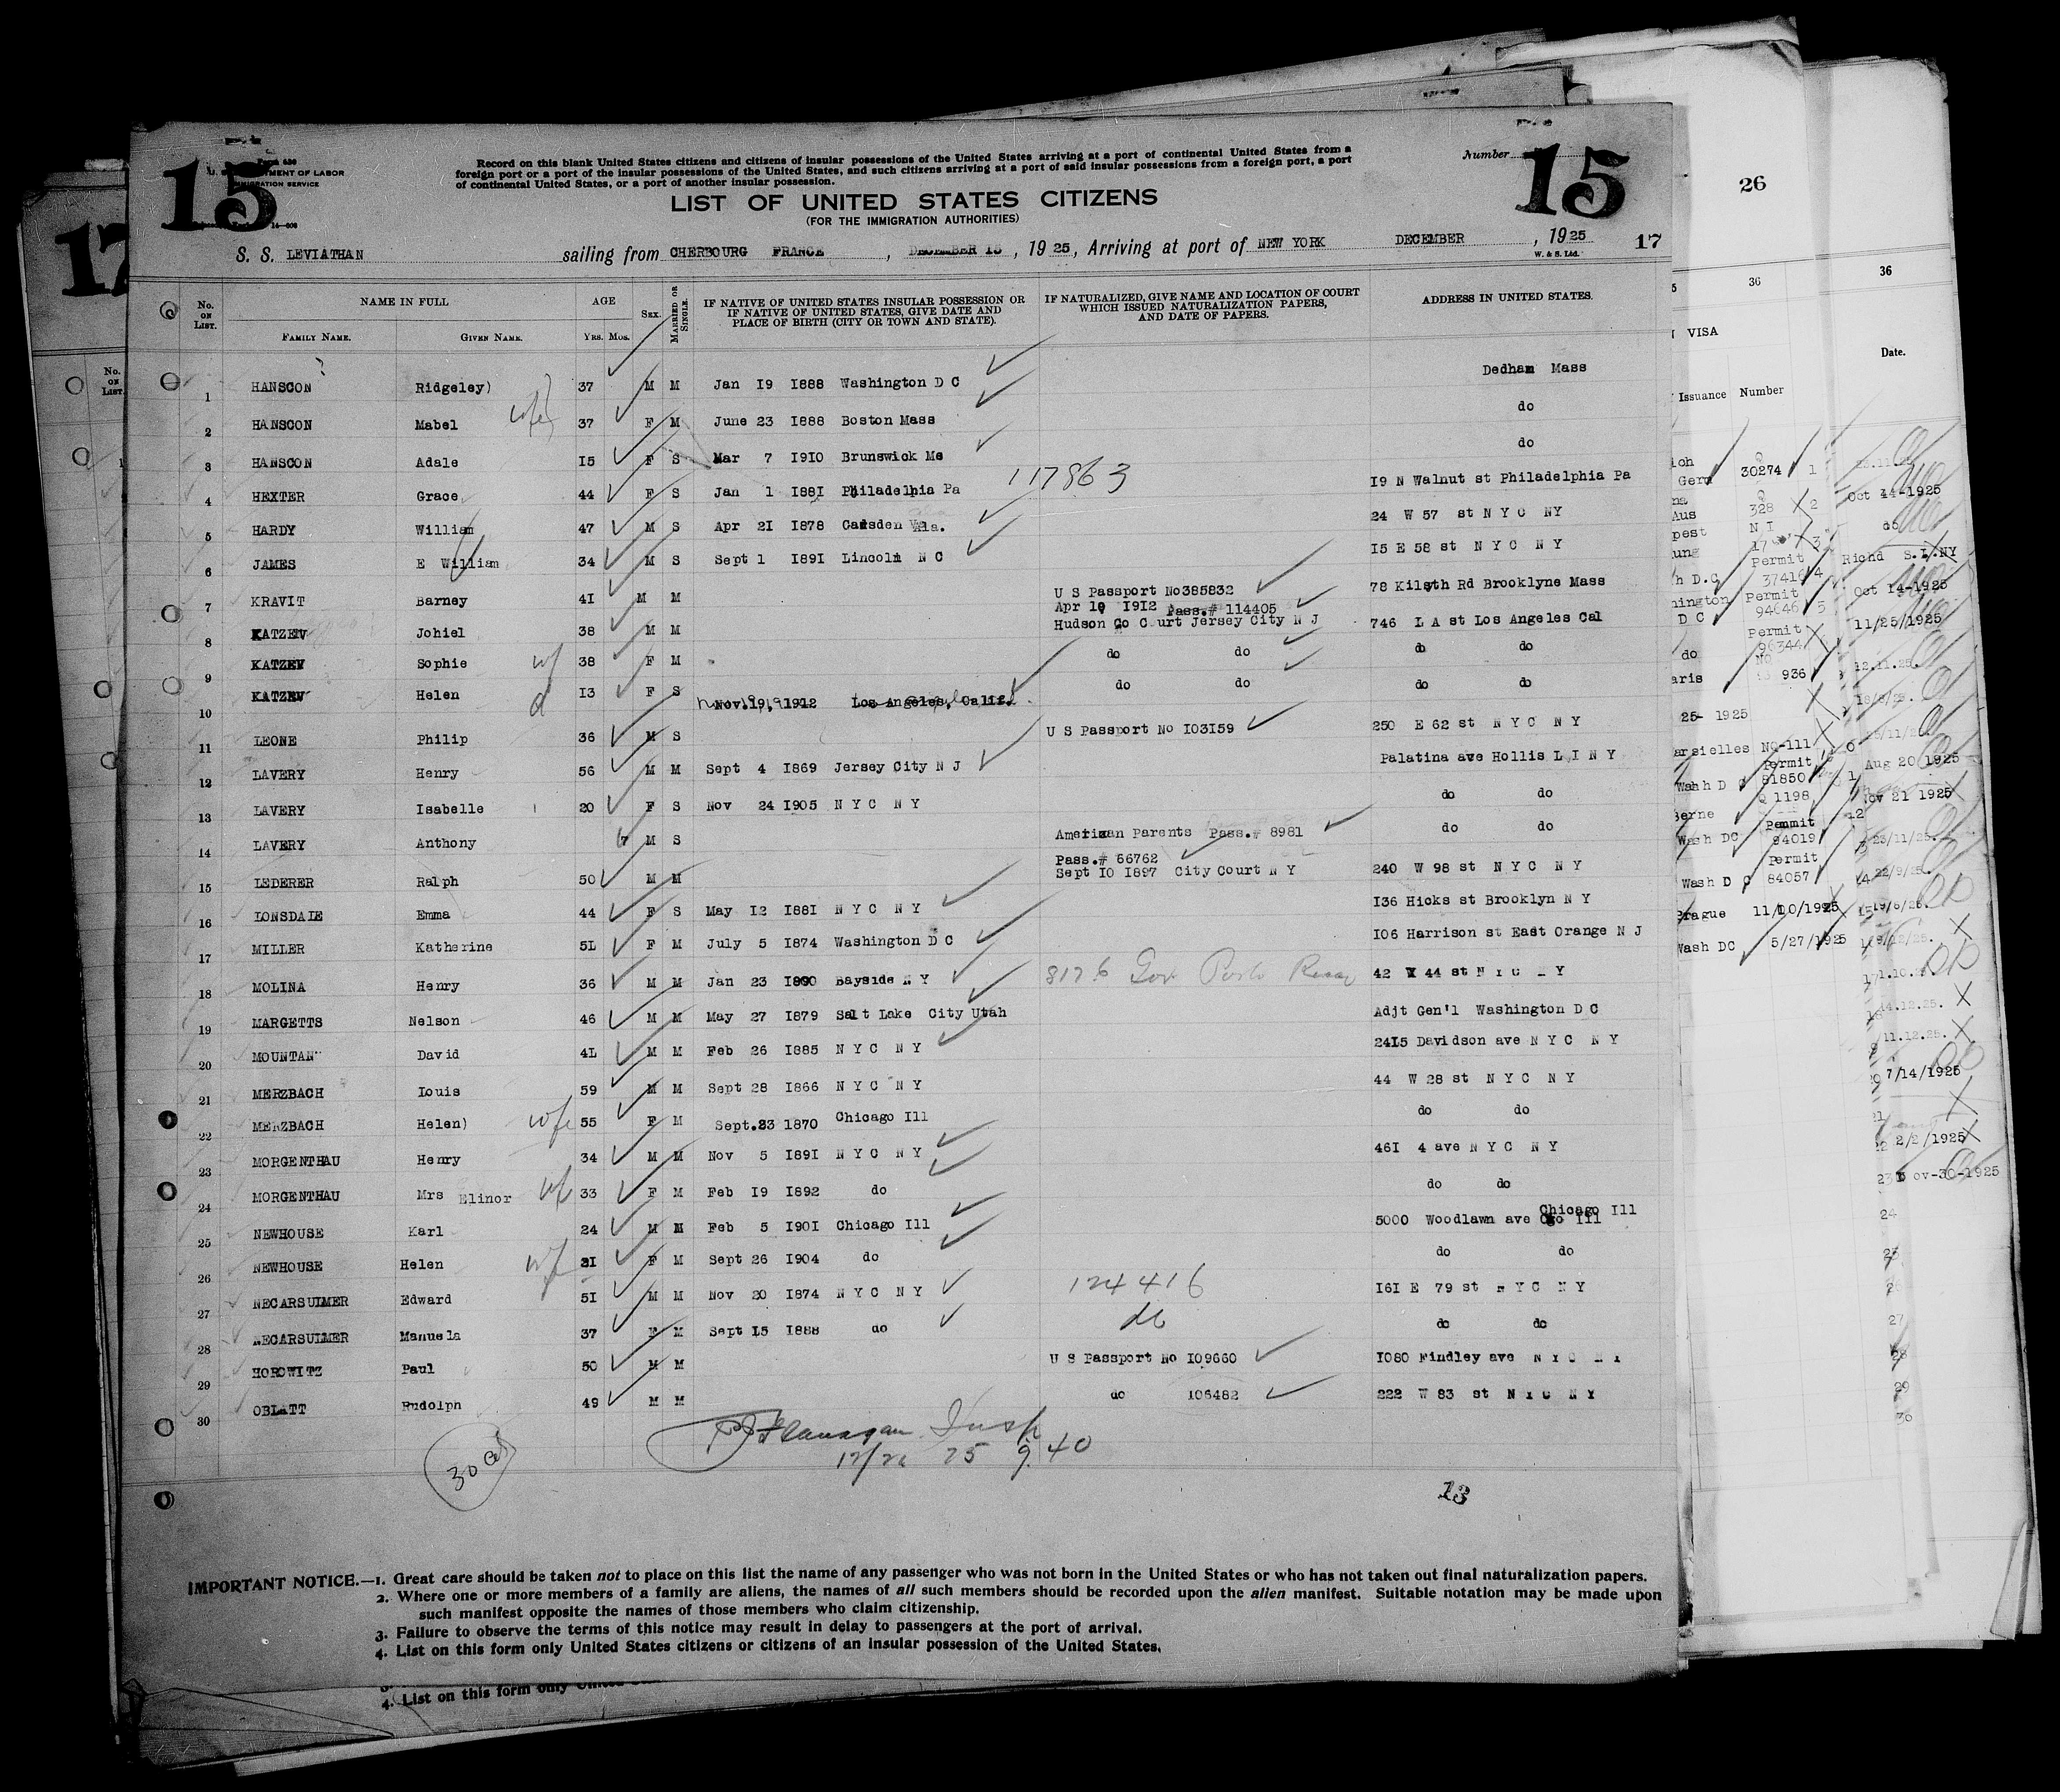 15
U. S. DEPARTMENT OF LABOR
IMMIGRATION SERVICE
Record on this blank United States citizens and citizens of insular possessions of the United States arriving at a port of continental United States from a
foreign port or a port of the insular possessions of the United States, and such citizens arriving at a port of said insular possessions from a foreign port, a port
of continental United States, or a port of another insular possession.
Number 15
LIST OF UNITED STATES CITIZENS
(FOR THE IMMIGRATION AUTHORITIES)
S. S. LEVIATHAN sailing from CHERBOURG FRANCE , DECEMBER 15 , 1925, Arriving at port of NEW YORK DECEMBER , 1925 17
W. & S. Ltd.
No. ON LIST. NAME IN FULL AGE SEX. MARRIED OR SINGLE. IF NATIVE OF UNITED STATES INSULAR POSSESSION OR IF NATIVE OF UNITED STATES, GIVE DATE AND PLACE OF BIRTH (CITY OR TOWN AND STATE). IF NATURALIZED, GIVE NAME AND LOCATION OF COURT WHICH ISSUED NATURALIZATION PAPERS, AND DATE OF PAPERS. ADDRESS IN UNITED STATES.
FAMILY NAME. GIVEN NAME. YRS. MOS.
1 HANSCON Ridgeley) 37 M M Jan 19 1888 Washington D C Dedham Mass
2 HANSCON Mabel wife 37 F M June 23 1888 Boston Mass do
3 HANSCON Adale 15 F S Mar 7 1910 Brunswick Me do
4 HEXTER Grace 44 F S Jan 1 1881 Philadelhia Pa 117863 19 N Walnut st Philadelphia Pa
5 HARDY William 47 M S Apr 21 1878 Camsden Ala. 24 W 57 st N Y C NY
6 JAMES E William 34 M S Sept 1 1891 Lincoln N C 15 E 58 st N Y C N Y
7 KRAVIT Barney 41 M M U S Passport No385832 78 Kilsyth Rd Brooklyne Mass
8 KATZEV Johiel 38 M M Apr 10 1912 Pass.# 114405 Hudson Co Court Jersey City N J 746 L A st Los Angeles Cal
9 KATZEV Sophie wf 38 F M do do do do
10 KATZEV Helen d 13 F S Nov.19,1912 Los Angeles, Calif. do do do do
11 LEONE Philip 36 M S U S Passport No 103159 250 E 62 st N Y C N Y
12 LAVERY Henry 56 M M Sept 4 1869 Jersey City N J Palatina ave Hollis L I N Y
13 LAVERY Isabelle 20 F S Nov 24 1905 N Y C N Y do do
14 LAVERY Anthony M S American Parents Pass.# 8981 do do
15 LEDERER Ralph 50 M M Pass.# 66762 Sept 10 1897 City Court N Y 240 W 98 st N Y C N Y
16 LONSDALE Emma 44 F S May 12 1881 N Y C N Y 136 Hicks st Brooklyn N Y
17 MILLER Katherine 51 F M July 5 1874 Washington D C 106 Harrison st East Orange N J
18 MOLINA Henry 36 M M Jan 23 1890 Bayside N Y 8176 Gov Porto 42 W 44 st N Y C N Y
19 MARGETTS Nelson 46 M M May 27 1879 Salt Lake City Utah Adjt Gen'l Washington D C
20 MOUNTAN David 41 M M Feb 26 1885 N Y C N Y 2415 Davidson ave N Y C N Y
21 MERZBACH Louis 59 M M Sept 28 1866 N Y C N Y 44 W 28 st N Y C N Y
22 MERZBACH Helen) wfe 55 F M Sept.23 1870 Chicago Ill do do
23 MORGENTHAU Henry 34 M M Nov 5 1891 N Y C N Y 461 4 ave N Y C N Y
24 MORGENTHAU Mrs Elinor wf 33 F M Feb 19 1892 do do do
25 NEWHOUSE Karl 24 M M Feb 5 1901 Chicago Ill 5000 Woodlawn ave Chicago Ill
26 NEWHOUSE Helen wf 21 F M Sept 26 1904 do do do
27 NECARSULMER Edward 51 M M Nov 20 1874 N Y C N Y 124416 161 E 79 st N Y C N Y
28 NECARSULMER Manuela 37 F M Sept 15 1888 do do do do
29 HOROWITZ Paul 50 M M U S Passport No 109660 1080 Findley ave N Y C N Y
30 OBLATT Rudolph 49 M M do 106482 222 W 83 st N Y C N Y
Flanagan Insp
25 9.40
13
IMPORTANT NOTICE.—1. Great care should be taken not to place on this list the name of any passenger who was not born in the United States or who has not taken out final naturalization papers.
2. Where one or more members of a family are aliens, the names of all such members should be recorded upon the alien manifest. Suitable notation may be made upon
such manifest opposite the names of those members who claim citizenship.
3. Failure to observe the terms of this notice may result in delay to passengers at the port of arrival.
4. List on this form only United States citizens or citizens of an insular possession of the United States.
4. List on this form only
17
No. ON LIST.
26
36
VISA
Issuance Number
30274 1
328 2
N I
Permit
37416 4
Permit
94646 5
D C
Permit
96344
do
936
25- 1925
NQ-111
Permit
Wash D C 81850
Q 1198
Berne
Permit
Wash DC 94019
Permit
Wash D C 84057
Prague 11/10/1925
Wash DC 5/27/1925
36
Date.
Oct 14-1925
do
Richd S.I.NY
Oct 14-1925
11/25/1925
12.11.25.
Aug 20 1925
Nov 21 1925
23/11/25.
22/9/25.
14.12.25.
11.12.25.
7/14/1925
22 2/2/1925
23 Nov-30-1925
24
25
26
27
28
29
30